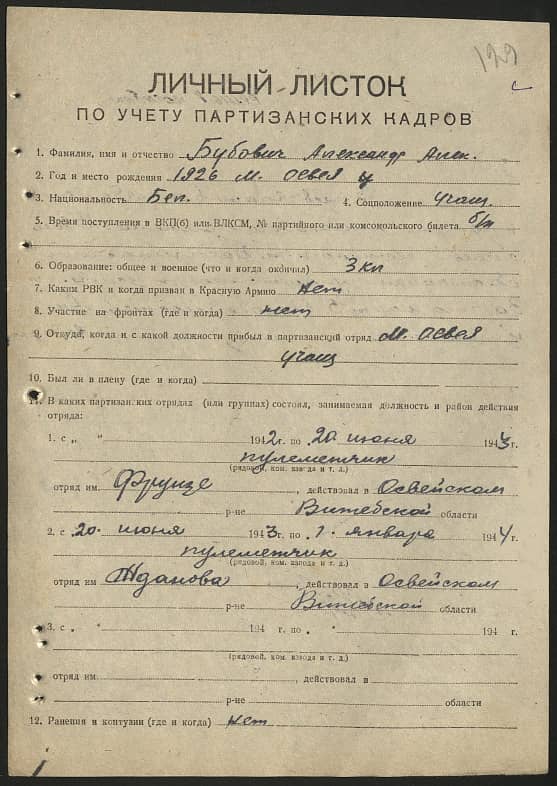 129
ЛИЧНЫЙ ЛИСТОК
ПО УЧЕТУ ПАРТИЗАНСКИХ КАДРОВ
1. Фамилия, имя и отчество Бубович Александр Алек.
2. Год и место рождения 1926 м. Освея
3. Национальность Бел. 4. Соцположение учащ.
5. Время поступления в ВКП(б) или ВЛКСМ, № партийного или комсомольского билета б/п
6. Образование: общее и военное (что и когда окончил) 3 кл
7. Каким РВК и когда призван в Красную Армию нет
8. Участие на фронтах (где и когда) нет
9. Откуда, когда и с какой должности прибыл в партизанский отряд м. Освея
учащ
10. Был ли в плену (где и когда)
11. В каких партизанских отрядах (или группах) состоял, занимаемая должность и район действия
отряда:
1. с „ “ 1942 г. по 20 июня 1943 г.
пулеметчик
(рядовой, ком. взвода и т. д.)
отряд им. Фрунзе, действовал в Освейском
р-не Витебской области
2. с 20 июня 1943 г. по 1 января 1944 г.
пулеметчик
(рядовой, ком. взвода и т. д.)
отряд им Жданова, действовал в Освейском
р-не Витебской области
3. с „ 194 г. по „ 194 г.
(рядовой, ком. взвода и т. д.)
отряд им., действовал в
р-не области
12. Ранения и контузии (где и когда) нет